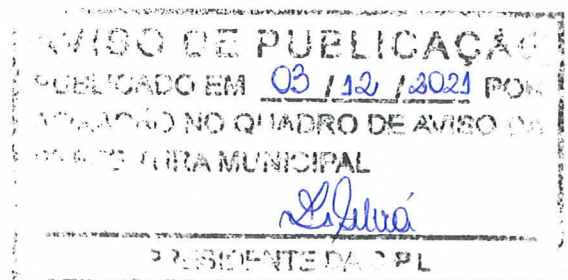 AVISO DE PUBLICAÇÃO
PUBLICADO EM 03 / 12 / 2021 POR
NO QUADRO DE AVISO DA
MUNICIPAL
PRESIDENTE DA CPL